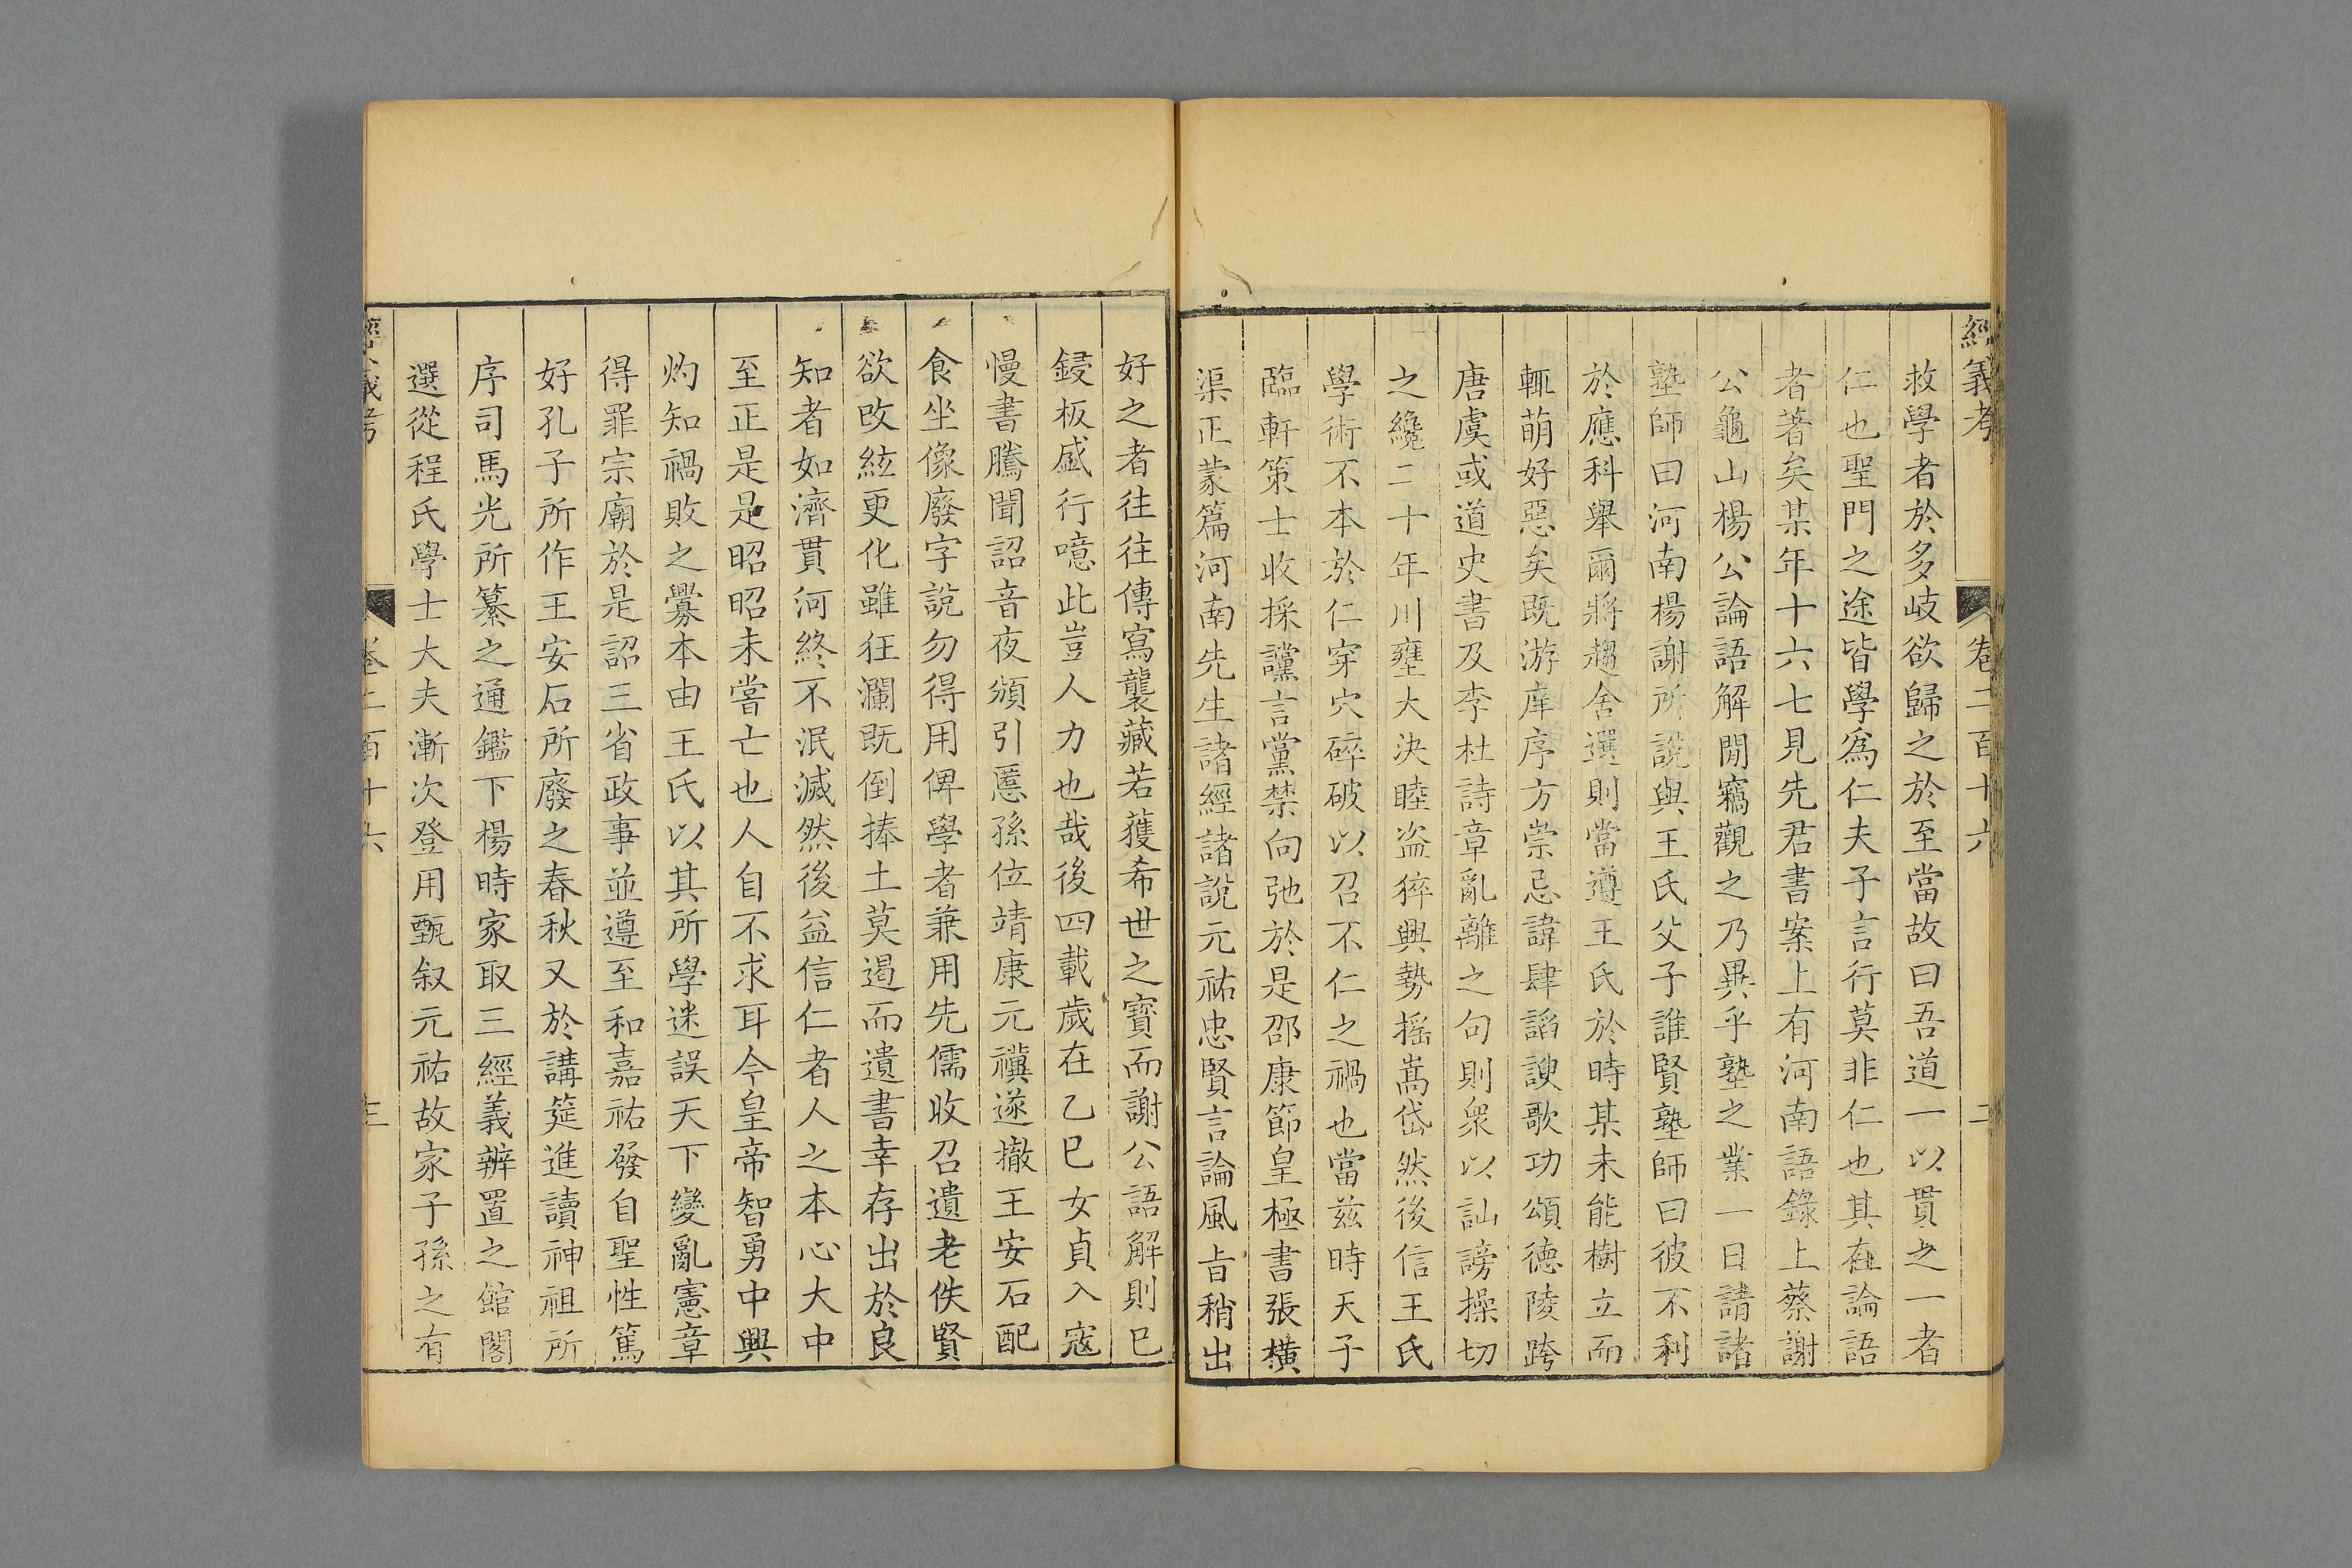 經義考 卷二百十六 二
救學者於多岐欲歸之於至當故曰吾道一以貫之一者
仁也聖門之途皆學爲仁夫子言行莫非仁也其在論語
者著矣某年十六七見先君書案上有河南語錄上蔡謝
公龜山楊公論語解閒竊觀之乃異乎塾之業一日請諸
塾師曰河南楊謝所說與王氏父子誰賢塾師曰彼不利
於應科舉爾將趨舍選則當遵王氏於時某未能樹立而
輒萌好惡矣既游庠序方崇忌諱肆謟諛歌功頌德陵跨
唐虞或道史書及李杜詩章亂離之句則衆以訕謗操切
之纔二十年川壅大決睦盜猝興勢摇嵩岱然後信王氏
學術不本於仁穿穴碎破以召不仁之禍也當茲時天子
臨軒策士收採讜言黨禁向弛於是邵康節皇極書張橫
渠正蒙篇河南先生諸經諸說元祐忠賢言論風旨稍出
好之者往往傳寫襲藏若獲希世之寶而謝公語解則已
鋟板盛行噫此豈人力也哉後四載歲在乙巳女貞入寇
慢書騰聞詔音夜頒引慝孫位靖康元禩遂撤王安石配
食坐像廢字說勿得用俾學者兼用先儒收召遺老佚賢
欲改絃更化雖狂瀾既倒捧土莫遏而遺書幸存出於良
知者如濟貫河終不泯滅然後益信仁者人之本心大中
至正是是昭昭未嘗亡也人自不求耳今皇帝智勇中興
灼知禍敗之釁本由王氏以其所學迷誤天下變亂憲章
得罪宗廟於是詔三省政事並遵至和嘉祐發自聖性篤
好孔子所作王安石所廢之春秋又於講筵進讀神祖所
序司馬光所纂之通鑑下楊時家取三經義辨置之館閣
選從程氏學士大夫漸次登用甄叙元祐故家子孫之有
經義考 卷二百十六 三